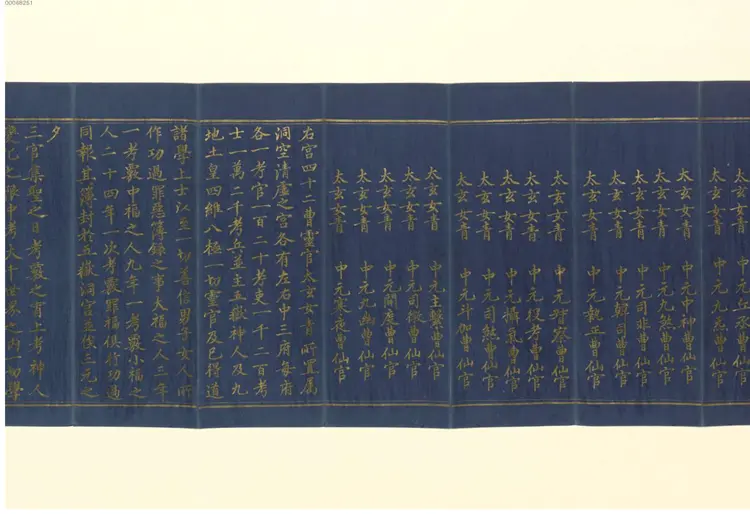 00068251
太玄女青
太玄女青 中元九
曹仙官
太玄女青 中元中神曹仙官
太玄女青 中元九煞曹仙官
太玄女青 中元司非曹仙官
太玄女青 中元 司曹仙官
太玄女青 中元執正曹仙官
太玄女青 中元 察曹仙官
太玄女青 中元役考曹仙官
太玄女青 中元攝氣曹仙官
太玄女青 中元司 曹仙官
太玄女青 中元 曹仙官
太玄女青 中元主繫曹仙官
太玄女青 中元司徼曹仙官
太玄女青 中元開度曹仙官
太玄女青 中元九幽曹仙官
太玄女青 中元寒夜曹仙官
右宮四十二曹靈官太玄女青所置屬
洞空清虛之宮各有左右中三府每府
各一考官一百二十考吏一千二百考
士一萬二千考兵並主五嶽神人及九
地土皇四維八極一切靈官及已得道
諸學上士以至一切善信男子女人所
作功過罪 簿錄之事大福之人三年
一考覈中福之人九年一考覈小福之
人二十四年一次考覈罪福俱行功過
同報其簿封於五嶽洞宮並俟三元之
夕
三官集聖之日考覈之有上考神人
之學中考大千世界之內一切學